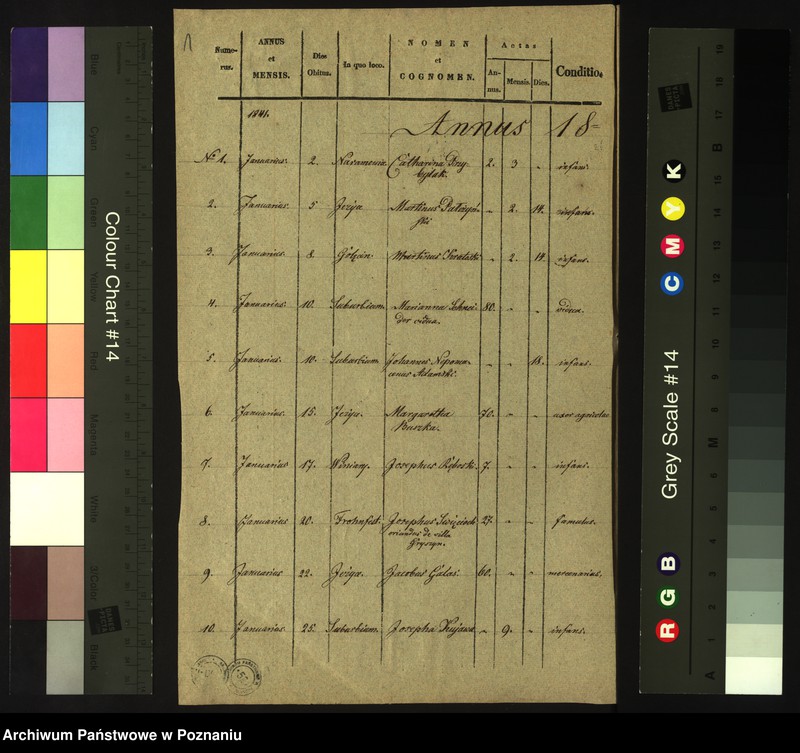 Nume-
rus.
ANNUS
et
MENSIS.
Dies
Obitus.
In quo loco.
NOMEN
et
COGNOMEN.
Aetas
An-
nus.
Mensis.
Dies.
Conditio.
1841.
Annus 18
No 1. Januarius. 2. Catharina 2. 3 " infans.
2. Januarius. 5 Jezyce Martinus " 2. 14. infans.
3. Januarius. 8. Martinus " 2. 14. infans.
4. Januarius. 10. Suburbium. Marianna Schnei- 80. " " vidua.
der vidua.
5. Januarius. 10. Suburbium Johannes Nepomu- " " 18. infans.
cenus Adamski.
6. Januarius. 15. Margaretha 70. " " uxor agricolae
Buszka.
7. Januarius 17. Winiary. Josephus 7. " " infans.
8. Januarius 20. Frohnfest. Josephus 27. " " famulus.
oriundus de villa
9. Januarius 22. Jacobus Galas. 60. " " mercenarius.
10. Januarius 25. Suburbium. Josepha Kujawa " 9. " infans.
Colour Chart #14
Blue
Cyan
Green
Yellow
Red
Magenta
White
3/Color
Black
Grey Scale #14
R G B
C M Y K
A
M
B
1 2 3 4 5 6 7 8 9 10 11 12 13 14 15 16 17 18 19
DANES
PICTA
Archiwum Państwowe w Poznaniu